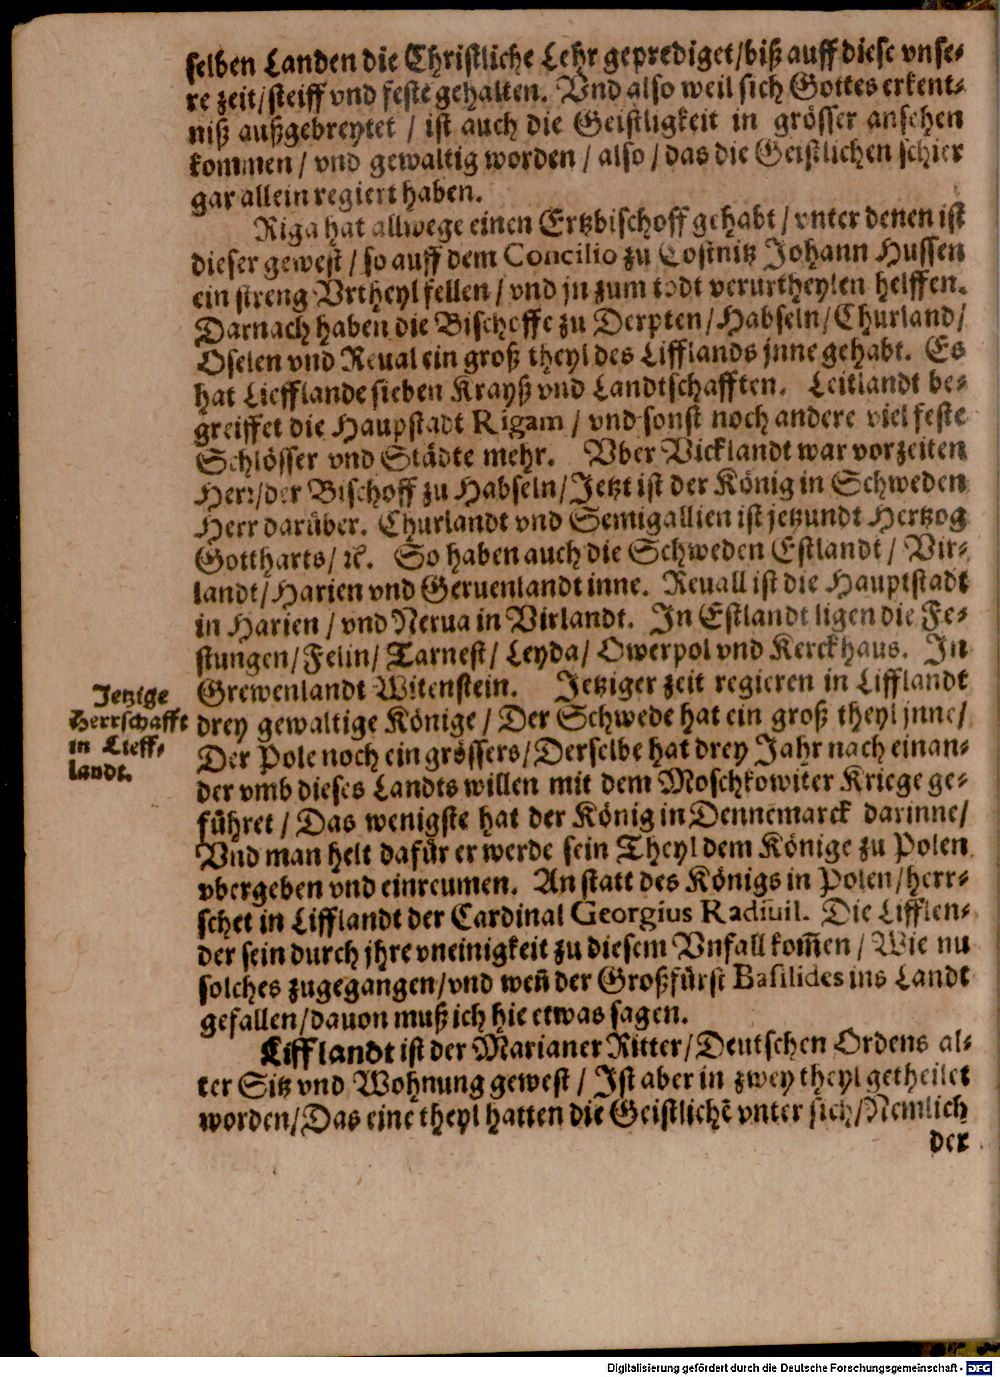 selben Landen die Christliche Lehr geprediget/biß auff diese vnse-
re zeit/steiff vnd feste gehalten. Vnd also weil sich Gottes erkent-
niß außgebreytet / ist auch die Geistligkeit in grösser ansehen
kommen / vnd gewaltig worden / also / das die Geistlichen schier
gar allein regiert haben.
Riga hat allwege einen Ertzbischoff gehabt / vnter denen ist
dieser gewest / so auff dem Concilio zu Costnitz Johann Hussen
ein streng Vrtheyl fellen / vnd jn zum todt verurtheylen helffen.
Darnach haben die Bischoffe zu Derpten/Habseln/Churland/
Oselen vnd Reual ein groß theyl des Lifflands jnne gehabt. Es
hat Liefflande sieben Krayß vnd Landtschafften. Leitlandt be-
greiffet die Haupstadt Rigam / vnd sonst noch andere viel feste
Schlösser vnd Städte mehr. Vber Vicklandt war vorzeiten
Herr/der Bischoff zu Habseln/Jetzt ist der König in Schweden
Herr darüber. Churlandt vnd Semigallien ist jetzundt Hertzog
Gottharts/ ꝛc. So haben auch die Schweden Estlandt / Vir-
landt/Harien vnd Geruenlandt inne. Reuall ist die Hauptstadt
in Harien / vnd Nerua in Virlandt. In Estlandt ligen die Fe-
stungen/Felin/ Tarnest/ Leyda/ Owerpol vnd Kerckhaus. In
Grewenlandt Witenstein. Jetziger zeit regieren in Lifflandt
drey gewaltige Könige / Der Schwede hat ein groß theyl jnne/
Der Pole noch ein grössers/Derselbe hat drey Jahr nach einan-
der vmb dieses Landts willen mit dem Moschkowiter Kriege ge-
führet / Das wenigste hat der König in Dennemarck darinne/
Vnd man helt dafür er werde sein Theyl dem Könige zu Polen
vbergeben vnd einreumen. An statt des Königs in Polen/herr-
schet in Lifflandt der Cardinal Georgius Radiuil. Die Lifflen-
der sein durch jhre vneinigkeit zu diesem Vnfall kom̄en / Wie nu
solches zugegangen/vnd weñ der Großfürst Basilides ins Landt
gefallen/dauon muß ich hie etwas sagen.
Lifflandt ist der Marianer Ritter/Deutschen Ordens al-
ter Sitz vnd Wohnung gewest / Ist aber in zwey theyl getheilet
worden/Das eine theyl hatten die Geistlichẽ vnter sich/Nemlich
der
Jetzige
Herrschafft
in Lieff-
landt.
Digitalisierung gefördert durch die Deutsche Forschungsgemeinschaft - DFG